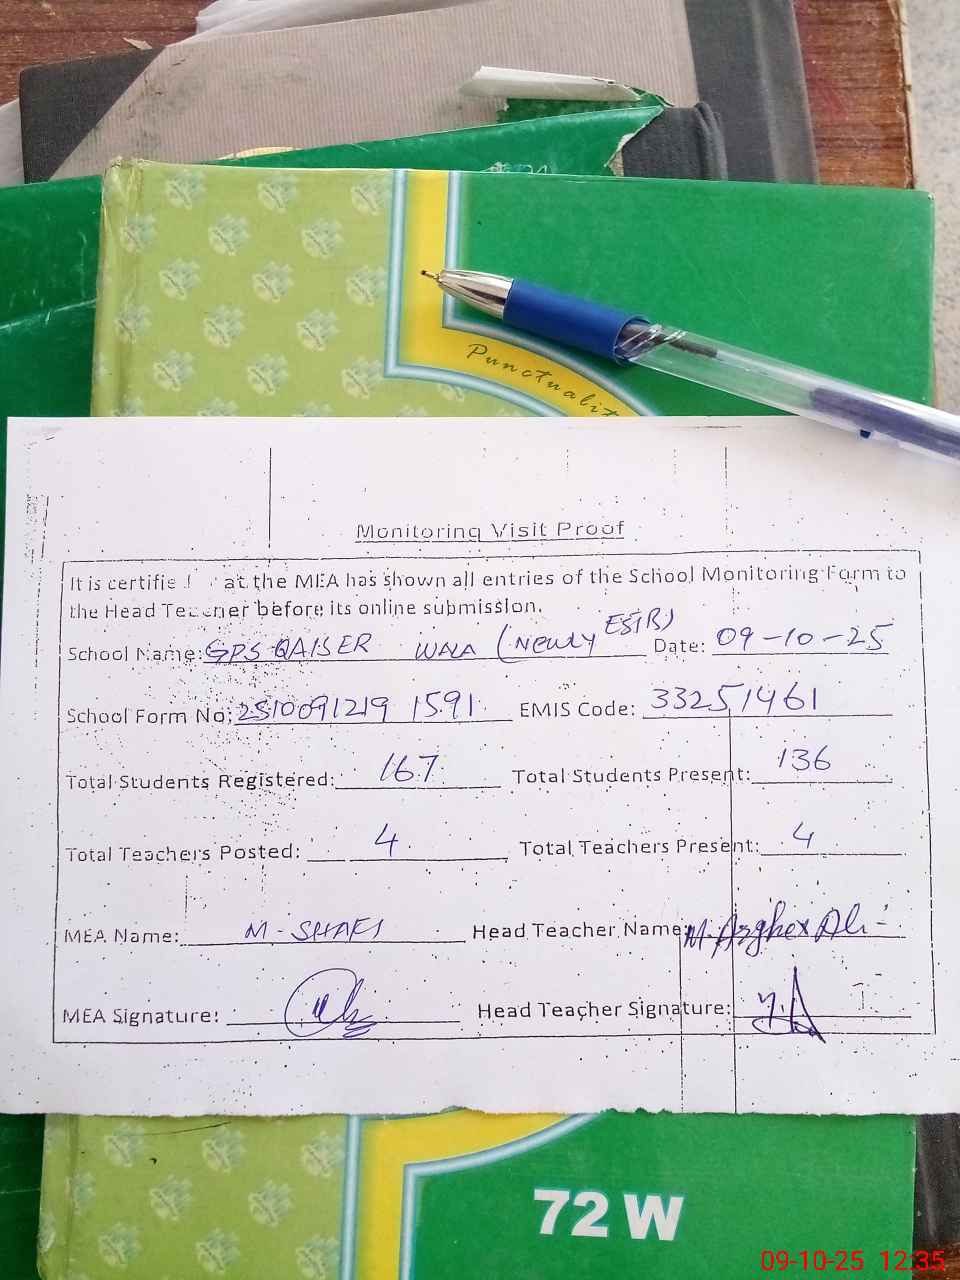 Punctualit
Monitoring Visit Proof
It is certifie at the MEA has shown all entries of the School Monitoring Form to
the Head Teacher before its online submission.
School Name: GPS QAISER WALA (Newly ESTB) Date: 09-10-25
School Form No: 2510091219 1591 EMIS Code: 33251461
Total Students Registered: 167 Total Students Present: 136
Total Teachers Posted: 4 Total Teachers Present: 4
MEA Name: M. SHAFI Head Teacher Name: M. Asgher Ali
MEA Signature: Head Teacher Signature:
72 W
09-10-25 12:35